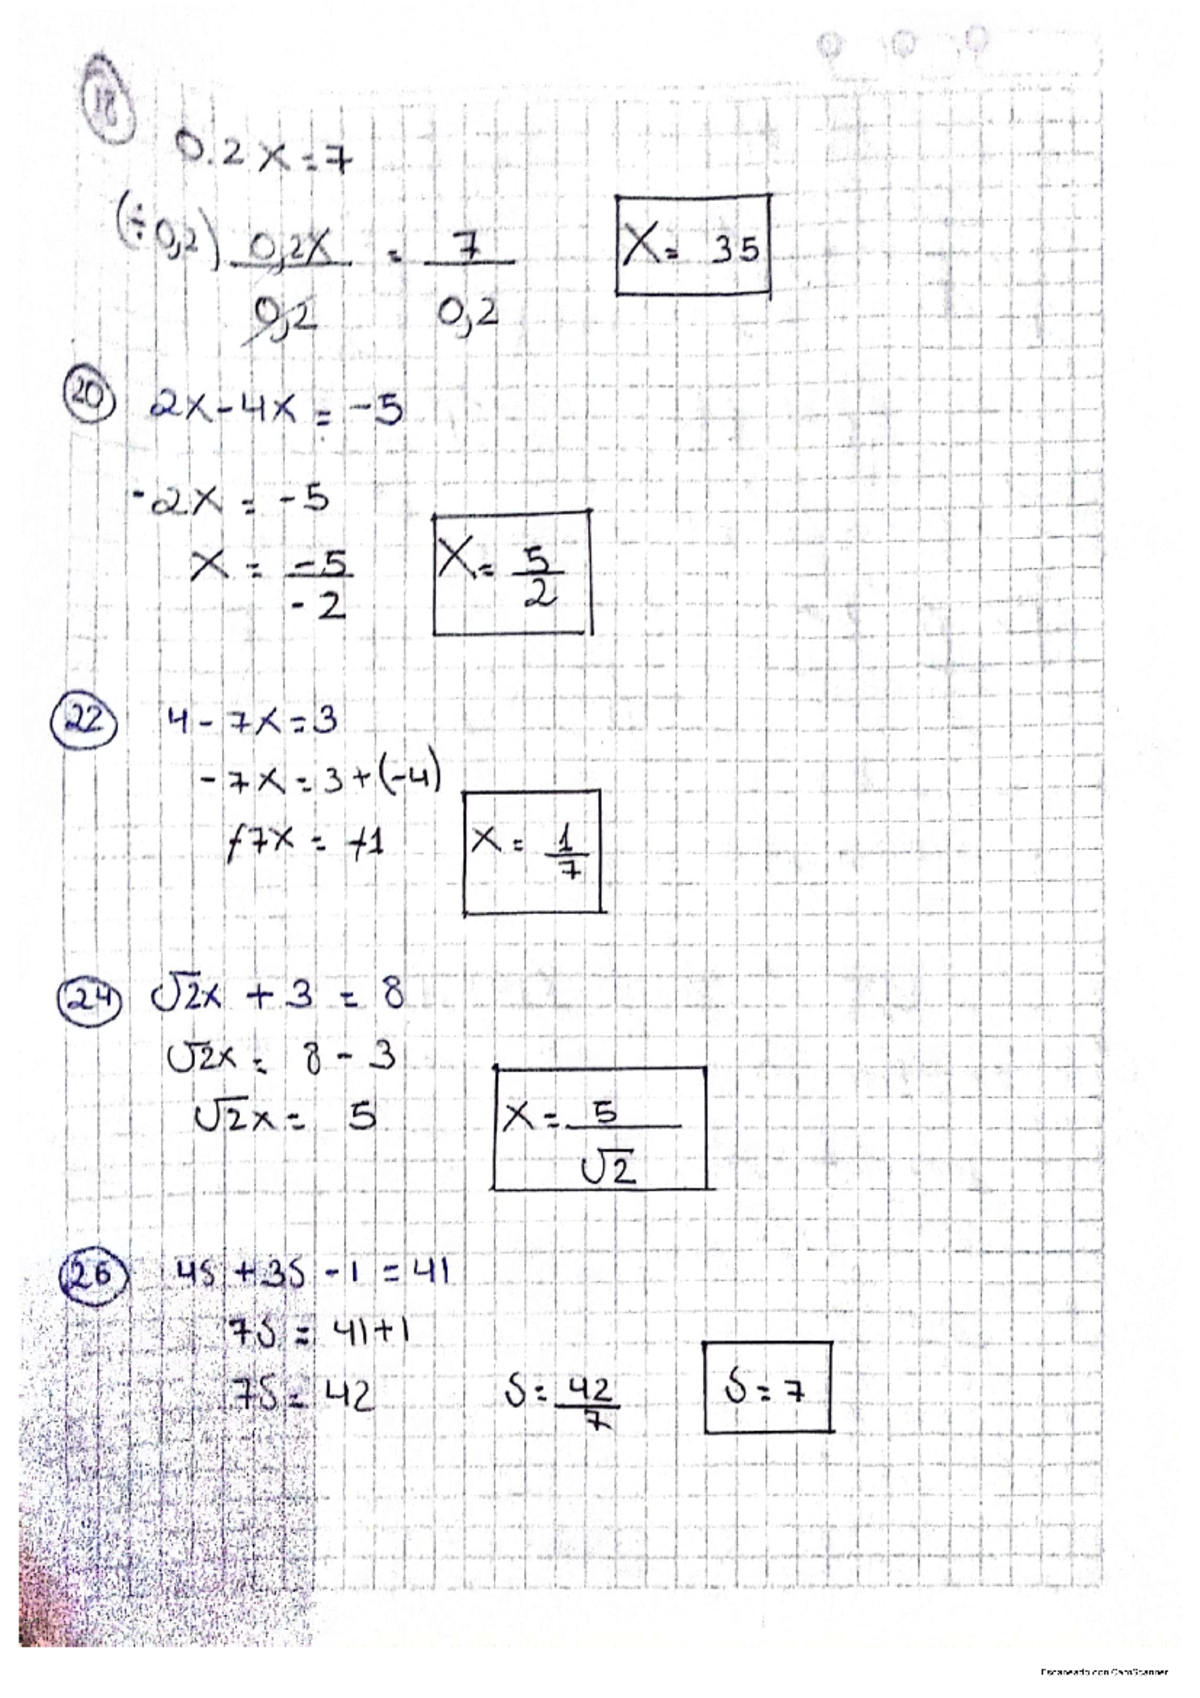 18
0.2x = 7
(÷0,2) 0,2x / 0,2 = 7 / 0,2 X = 35
20 2x - 4x = -5
-2x = -5
x = -5 / -2 X = 5 / 2
22 4 - 7x = 3
-7x = 3 + (-4)
-7x = -1 x = 1 / 7
24 √2x + 3 = 8
√2x = 8 - 3
√2x = 5 x = 5 / √2
26 4s + 3s - 1 = 41
7s = 41 + 1
7s = 42 s = 42 / 7 s = 7
Escaneado con CamScanner